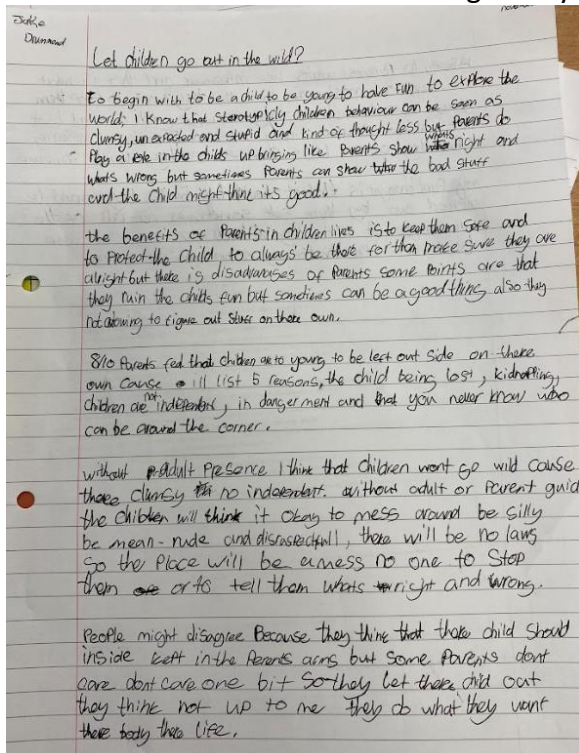 Jake
Drummond
Let children go out in the wild?
to begin with to be a child, to be young to have fun to explore the
world, I know that sterotypicly children behaviour can be seen as
clumsy, unexpected and stupid and kind of thought less but Parents do
Play a role in the childs upbringing like Parents show whats right and
whats wrong but sometimes Parents can show the bad stuff
and the child might think its good.
the benefits of Parents in children lives is to keep them safe and
to Protect the child, to always be there for them make sure they are
alright but there is disadvanages of Parents some Points are that
they ruin the childs fun but sometimes can be a good thing also they
not allowing to figure out stuff on there own.
8/10 Parents feel that children are to young to be left out side on there
own cause ill list 5 reasons, the child being lost, kidnapping,
children are not independent, in danger ment and that you never know who
can be around the corner.
without adult Presence I think that children wont go wild cause
there clumsy no independant. without adult or Parent guid
the children will think it okay to mess around be silly
be mean - rude and disraspectfull, there will be no laws
so the Place will be a mess no one to stop
them or to tell them whats right and wrong.
People might disagree Because they think that there child should
inside kept in the Perents arms but some Parents dont
care dont care one bit so they let there child out
they think not up to me they do what they want
there body there life.